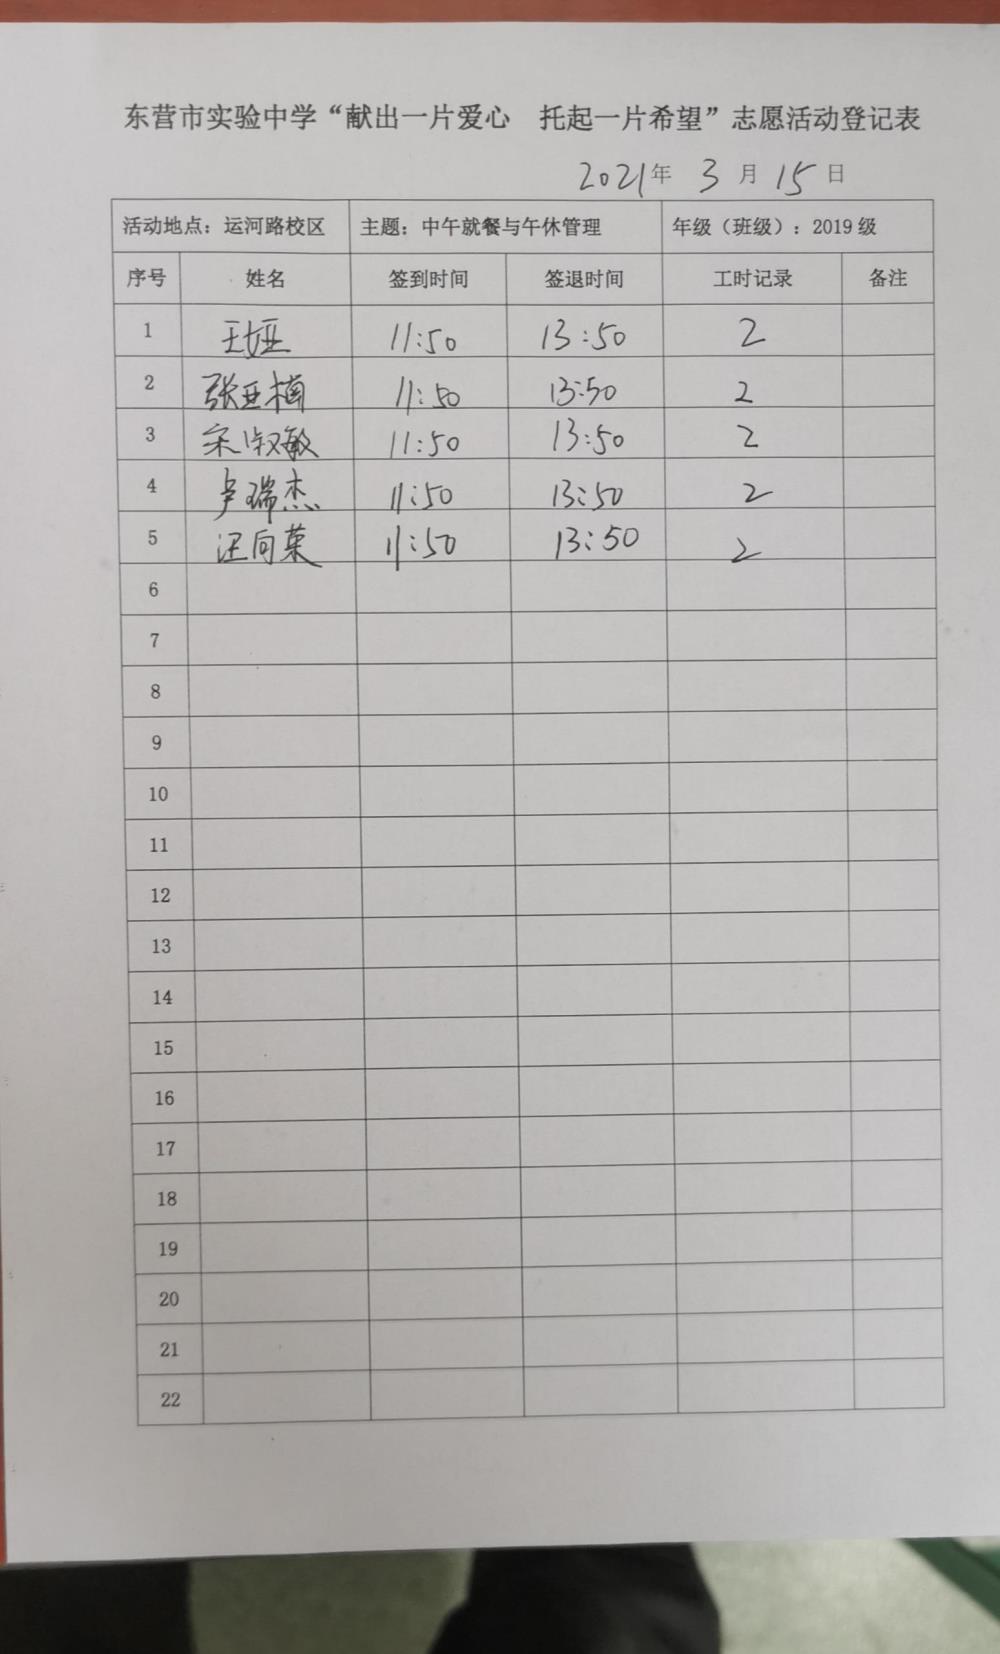 东营市实验中学“献出一片爱心　托起一片希望”志愿活动登记表
2021年 3 月 15 日
活动地点：运河路校区 主题：中午就餐与午休管理 年级（班级）：2019 级
序号 姓名 签到时间 签退时间 工时记录 备注
1 王娅 11:50 13:50 2
2 张亚楠 11:50 13:50 2
3 宋淑敏 11:50 13:50 2
4 卢瑞杰 11:50 13:50 2
5 汪向菓 11:50 13:50 2
6
7
8
9
10
11
12
13
14
15
16
17
18
19
20
21
22